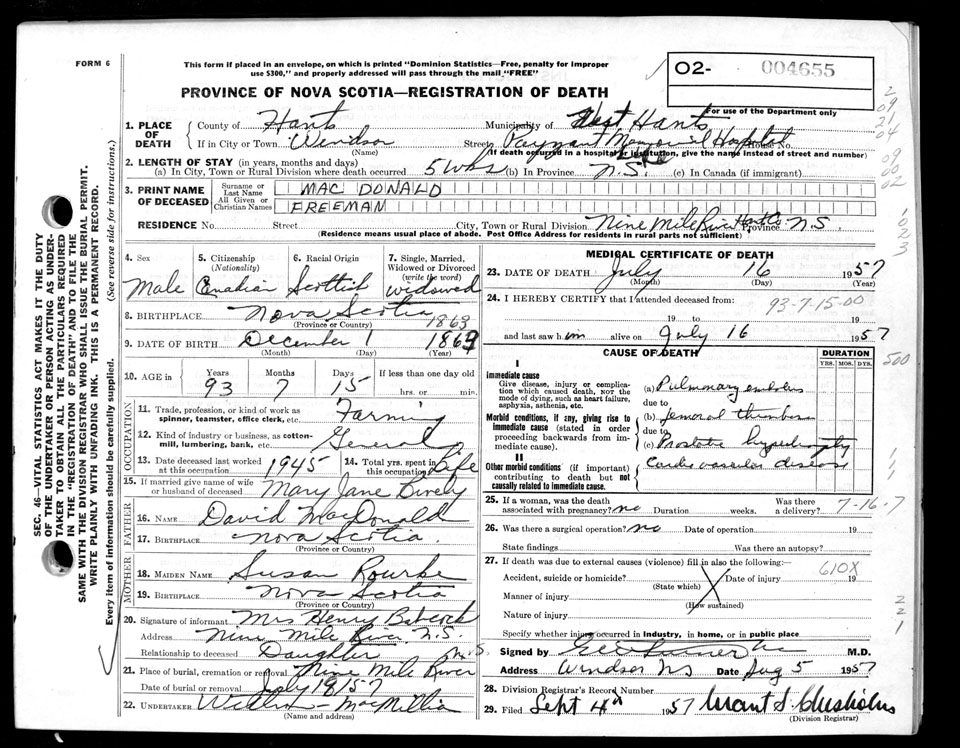 FORM 6
This form if placed in an envelope, on which is printed "Dominion Statistics—Free, penalty for improper
use $300," and properly addressed will pass through the mail "FREE"
O2- 004655
For use of the Department only
PROVINCE OF NOVA SCOTIA—REGISTRATION OF DEATH
1. PLACE OF DEATH
County of Hants Municipality of West Hants
If in City or Town Windsor Street Payzant Memorial Hospital House No.
(Name) (If death occurred in a hospital or institution, give the name instead of street and number)
2. LENGTH OF STAY (in years, months and days)
(a) In City, Town or Rural Division where death occurred 5 wks (b) In Province N.S. (c) In Canada (if immigrant)
3. PRINT NAME OF DECEASED
Surname or Last Name MAC DONALD
All Given or Christian Names FREEMAN
RESIDENCE No. Street City, Town or Rural Division Nine Mile River Hants Co Province N.S.
(Residence means usual place of abode. Post Office Address for residents in rural parts not sufficient)
4. Sex Male
5. Citizenship (Nationality) Canadian
6. Racial Origin Scottish
7. Single, Married, Widowed or Divorced (write the word) widowed
8. BIRTHPLACE Nova Scotia
(Province or Country) 1863
9. DATE OF BIRTH December 1 1863
(Month) (Day) (Year)
10. AGE in Years 93 Months 7 Days 15 If less than one day old hrs. or min.
OCCUPATION
11. Trade, profession, or kind of work as spinner, teamster, office clerk, etc. Farming
12. Kind of industry or business, as cotton-mill, lumbering, bank, etc. General
13. Date deceased last worked at this occupation 1945 14. Total yrs. spent in this occupation Life
15. If married give name of wife or husband of deceased Mary Jane
FATHER
16. NAME David MacDonald
17. BIRTHPLACE Nova Scotia.
(Province or Country)
MOTHER
18. MAIDEN NAME Susan Rourke
19. BIRTHPLACE Nova Scotia
(Province or Country)
20. Signature of informant Mrs Henry Babcock
Address Nine Mile River N.S.
Relationship to deceased Daughter
21. Place of burial, cremation or removal Nine Mile River N.S.
Date of burial or removal July 18/57
22. UNDERTAKER MacMillan
(Name and address)
MEDICAL CERTIFICATE OF DEATH
23. DATE OF DEATH July 16 1957
(Month) (Day) (Year)
24. I HEREBY CERTIFY that I attended deceased from: 93-7-15-00
19 to 19
and last saw him alive on July 16 1957
CAUSE OF DEATH DURATION
YRS. MOS. DYS.
I
Immediate cause
Give disease, injury or complication which caused death, not the mode of dying, such as heart failure, asphyxia, asthenia, etc.
(a) Pulmonary embolus
due to
Morbid conditions, if any, giving rise to immediate cause (stated in order proceeding backwards from immediate cause).
(b) femoral thrombosis
due to
(c) Prostatic hypertrophy
II
Other morbid conditions (if important) contributing to death but not causally related to immediate cause.
Cardio vascular disease
500
25. If a woman, was the death associated with pregnancy? no Duration weeks. Was there a delivery? 7-16-7
26. Was there a surgical operation? no Date of operation 19
State findings Was there an autopsy?
27. If death was due to external causes (violence) fill in also the following: 610X
Accident, suicide or homicide? Date of injury 19
(State which)
Manner of injury
(How sustained)
Nature of injury
Specify whether injury occurred in industry, in home, or in public place
Signed by M.D.
Address Windsor NS Date Aug 5 1957
28. Division Registrar's Record Number
29. Filed Sept 4th 1957 Grant S. Chisholm
(Division Registrar)
SEC. 46—VITAL STATISTICS ACT MAKES IT THE DUTY
OF THE UNDERTAKER OR PERSON ACTING AS UNDER-
TAKER TO OBTAIN ALL THE PARTICULARS REQUIRED
IN THE "REGISTRATION OF DEATH" AND TO FILE THE
SAME WITH THE DIVISION REGISTRAR WHO SHALL ISSUE THE BURIAL PERMIT.
WRITE PLAINLY WITH UNFADING INK. THIS IS A PERMANENT RECORD.
Every item of information should be carefully supplied. (See reverse side for instructions.)